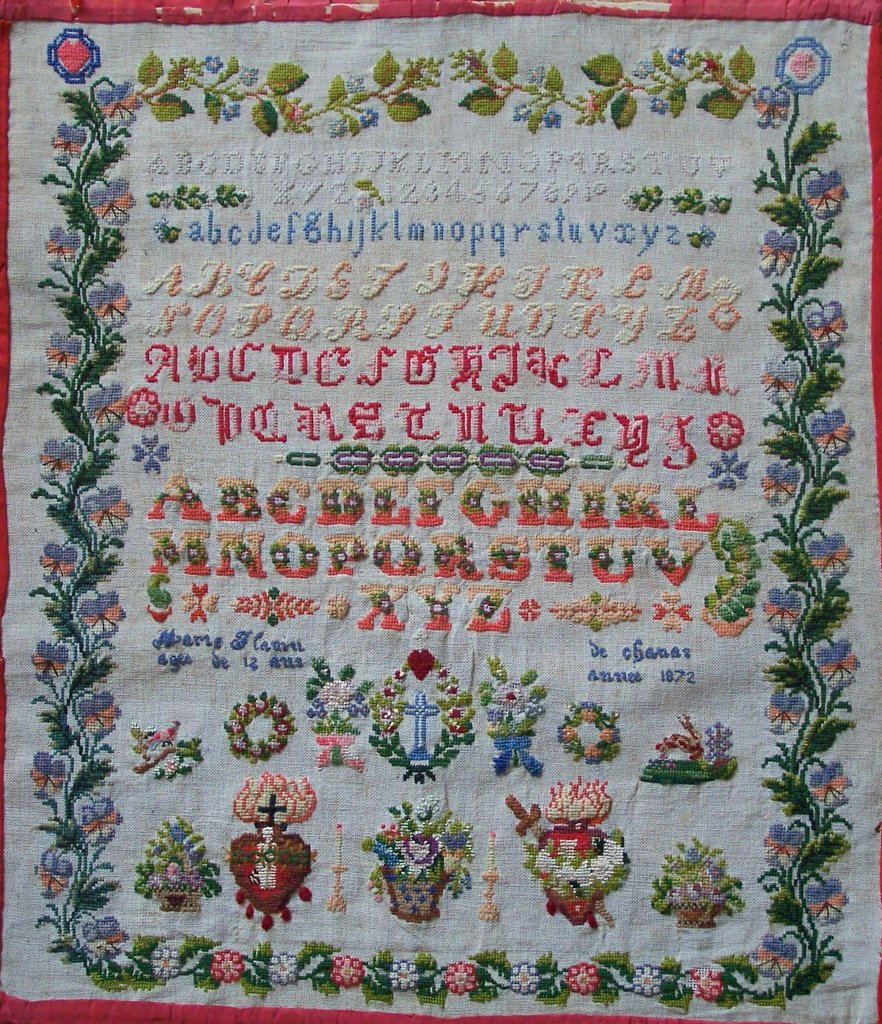 ABCDEFGHIJKLMNOPQRSTUV
XYZ 12345678910
abcdefghijklmnopqrstuvxyz
ABCDEFGHIKLM
NOPQRSTUVXYZ
ABCDEFGHJKLMN
OPQRSTUVXYZ
ABCDEFGHIKL
MNOPQRSTUV
XYZ
Marie de chanas
agée de 12 ans année 1872